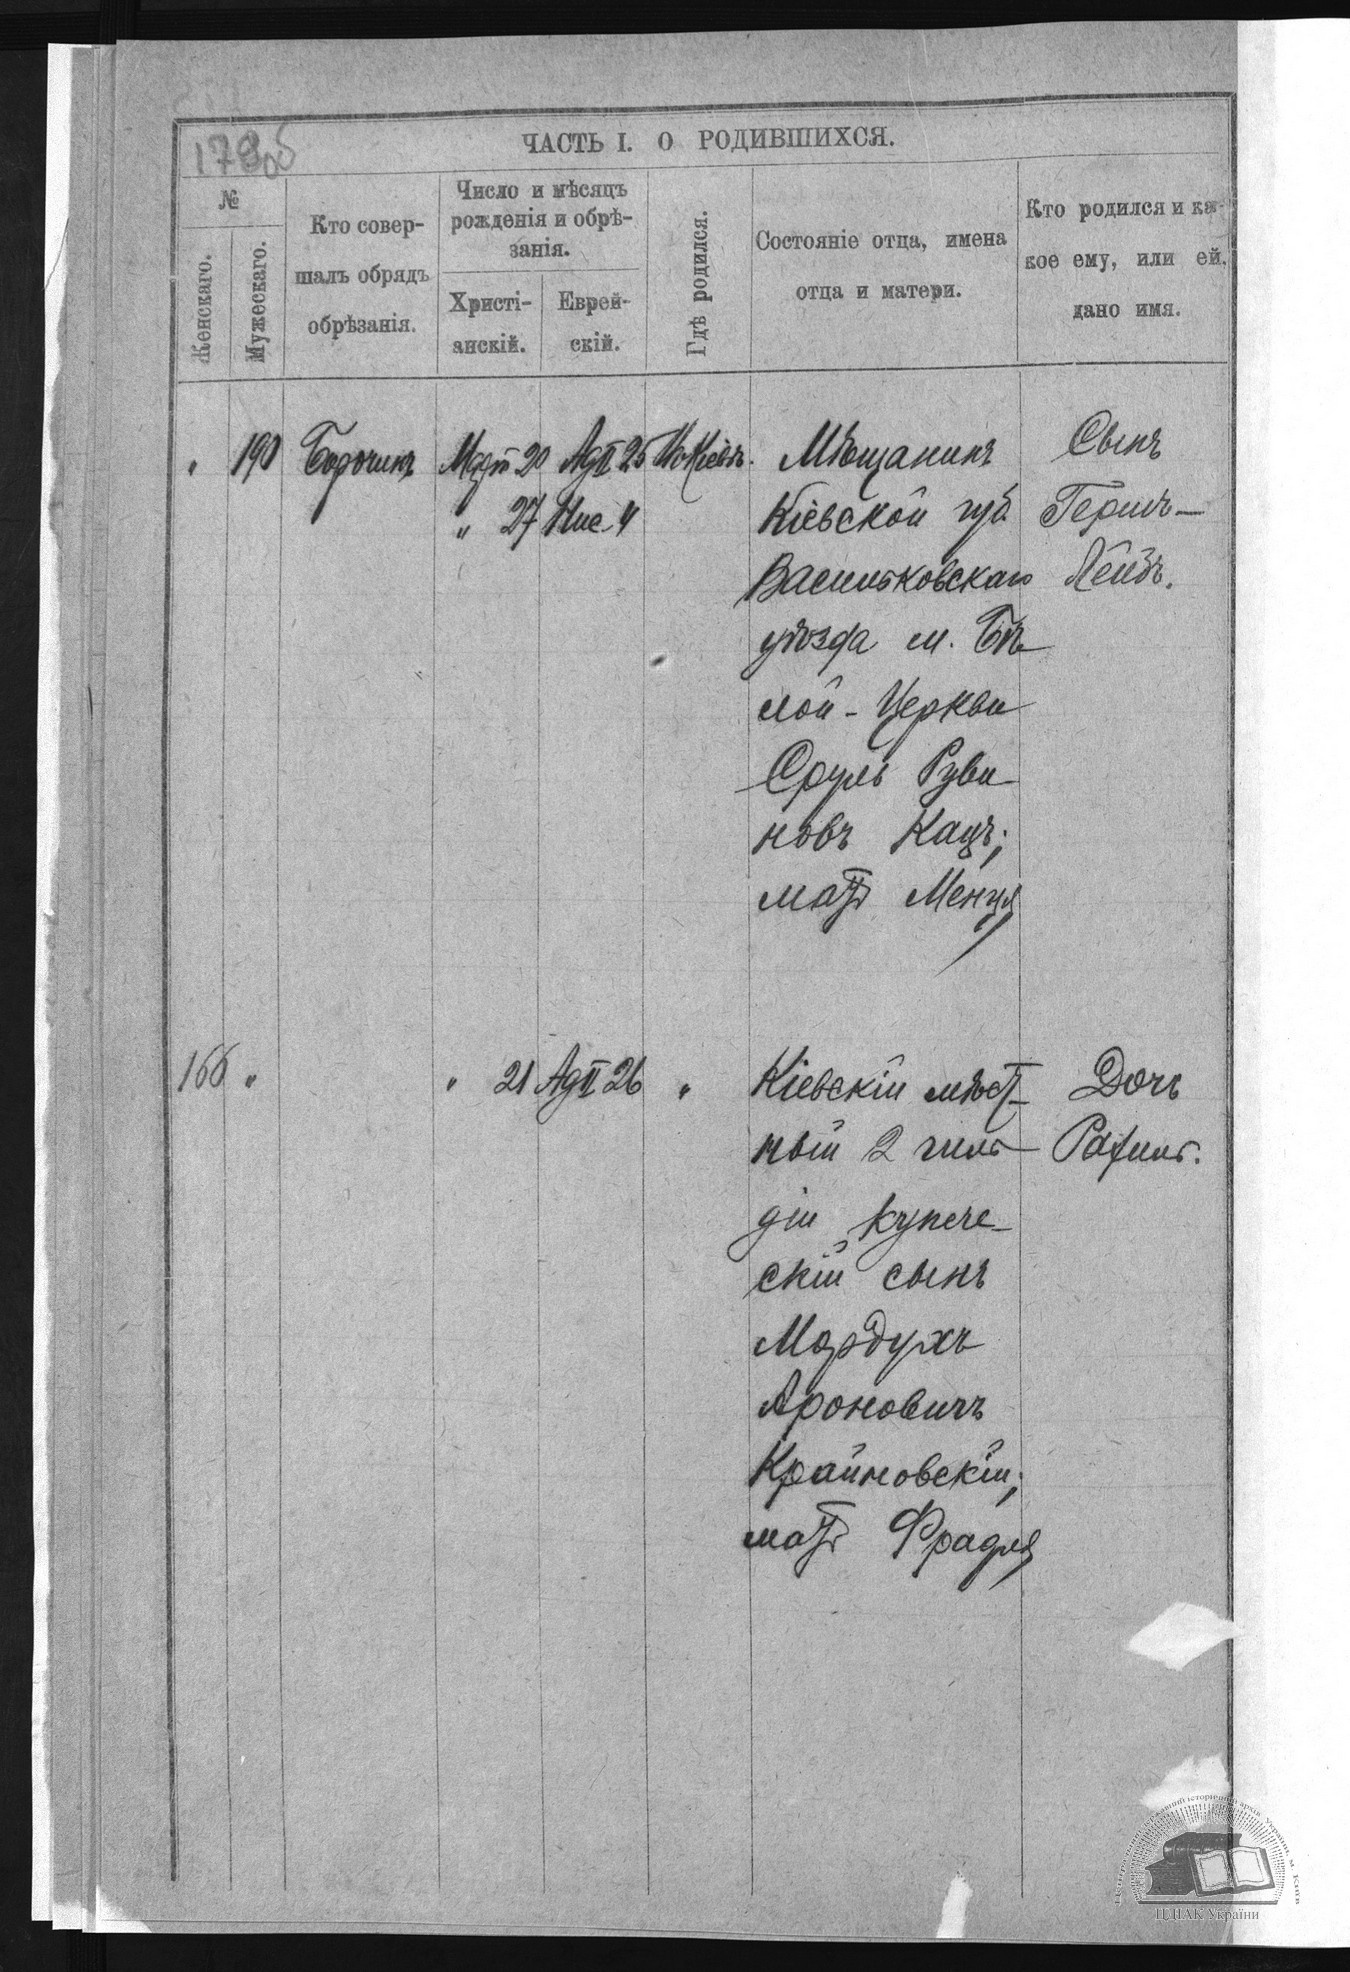 178об
ЧАСТЬ I. О РОДИВШИХСЯ.
№
Женскаго.
Мужескаго.
Кто совер-
шалъ обрядъ
обрѣзанія.
Число и мѣсяцъ
рожденія и обрѣ-
занія.
Христі-
анскій.
Еврей-
скій.
Гдѣ родился.
Состояніе отца, имена
отца и матери.
Кто родился и ка-
кое ему, или ей,
дано имя.
" 190 Бородинъ Март 20 АдII 25 Въ Кіевѣ.
" 27 Нис. 4
Мѣщанинъ
Кіевской губ.
Васильковскаго
уѣзда м. Бѣ-
лой-Церкви
Сруль Руви-
новъ Кацъ;
мать Менця
Сынъ
Гершъ-
Лейбъ.
166 " " 21 АдII 26 "
Кіевскій мѣст-
ный 2 гиль-
діи купече-
скій сынъ
Мордухъ
Ароновичъ
Крайновскій;
мать Фрадля
Дочь
Рахиль.
ЦДІАК України